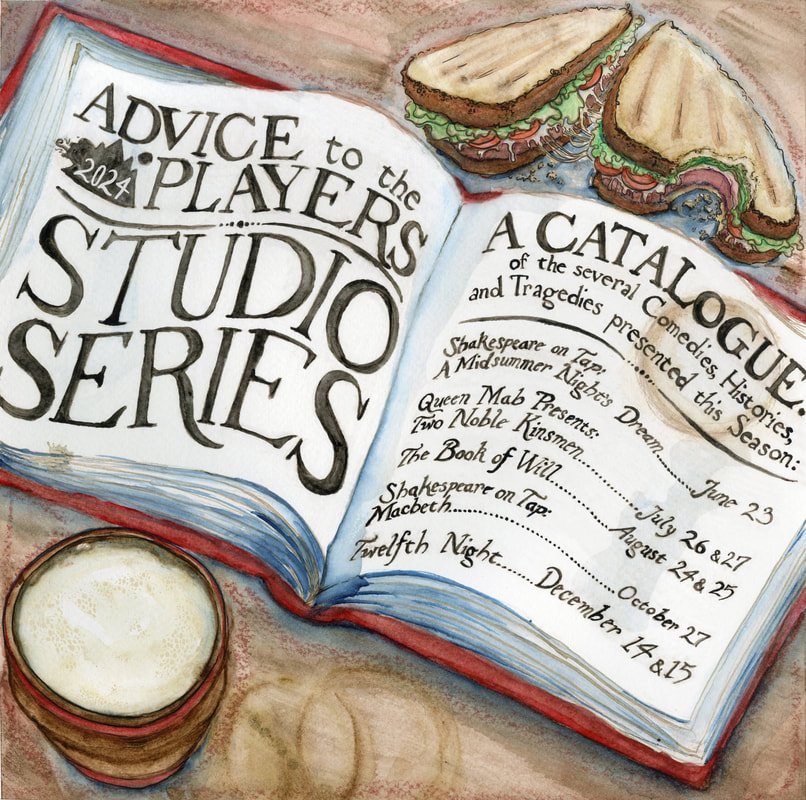 ADVICE to the
2024
PLAYERS
STUDIO
SERIES
A CATALOGUE,
of the several Comedies, Histories,
and Tragedies presented this Season:
Shakespeare on Tap:
A Midsummer Night's Dream...... June 23
Queen Mab Presents:
Two Noble Kinsmen............ July 26 & 27
The Book of Will............ August 24 & 25
Shakespeare on Tap:
Macbeth........................ October 27
Twelfth Night...... December 14 & 15